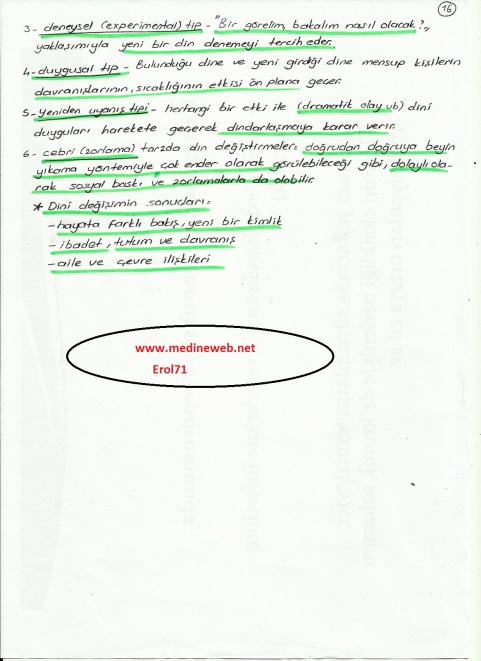 16
3- deneysel (experimental) tip - "Bir görelim, bakalım nasıl olacak?"
yaklaşımıyla yeni bir din denemeyi tercih eder.
4- duygusal tip - Bulunduğu dine ve yeni girdiği dine mensup kişilerin
davranışlarının, sıcaklığının etkisi ön plana geçer.
5- Yeniden uyanış tipi - herhangi bir etki ile (dramatik olay vb) dini
duyguları harekete geçerek dindarlaşmaya karar verir.
6- cebri (zorlama) tarzda din değiştirmeler: doğrudan doğruya beyin
yıkama yöntemiyle çok ender olarak görülebileceği gibi, dolaylı ola-
rak sosyal baskı ve zorlamalarla da olabilir.
* Dini değişimin sonuçları:
- hayata farklı bakış, yeni bir kimlik
- ibadet, tutum ve davranış
- aile ve çevre ilişkileri
www.medineweb.net
Erol71